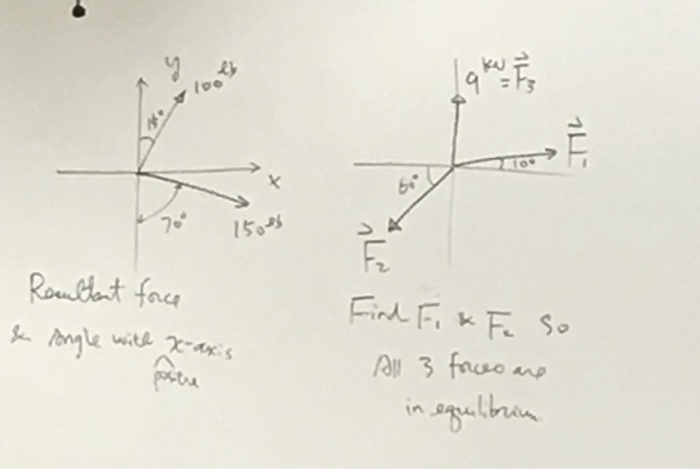 y
100 lb
15°
x
70°
150 lb
Resultant force
& angle with x-axis
positive
9 kN = F₃
F₁
10°
60°
F₂
Find F₁ & F₂ so
All 3 forces are
in equilibrium.